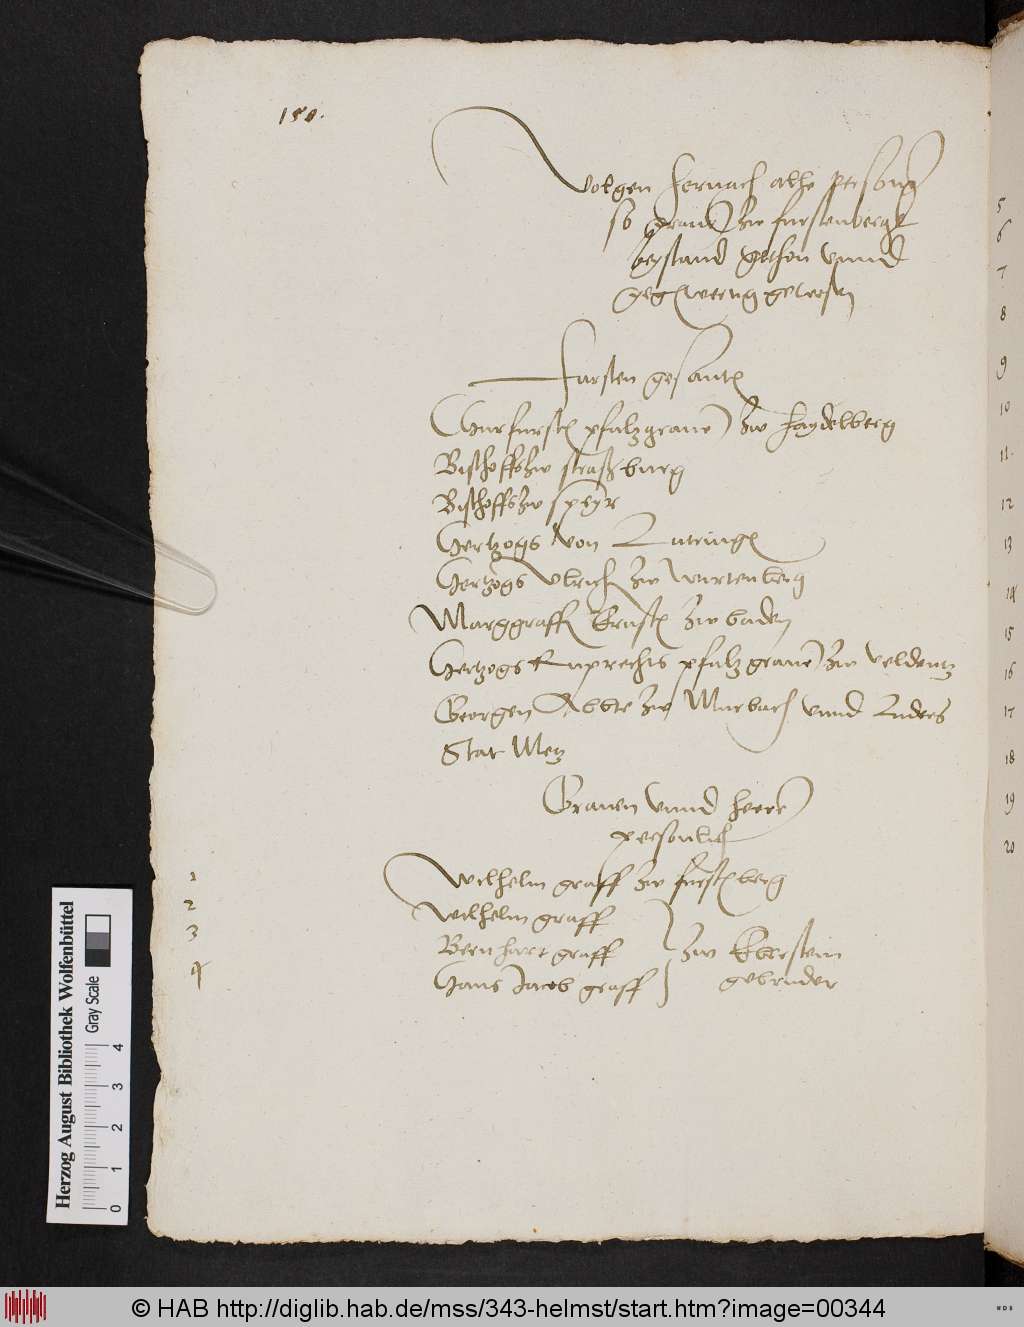 150.
Volgen hernach alle person
so graue zw furstenberg
beystand gethon vnnd
gegenwertig gewesen
Fursten gesanten
Churfursten pfaltzgraue zw Haydelberg
Bischoffs zw straßburg
Bischoffs zw speyr
Hertzogs von Lutringen
Hertzogs Vlrich zw wirtenberg
Marggraff Ernsten zw baden
Hertzogs Ruprechts pfaltzgraue zw veldentz
Georgen Abbte zw Murbach vnnd Luders
Stat Metz
Grauen vnnd herren
personlich
1 Wilhelm graff zw furstenberg
2 Wilhelm graff
3 Bernhart graff zw Eberstein
4 Hans Jacob graff gebruder
5
6
7
8
9
10
11.
12
13
14
15
16
17
18
19
20
Herzog August Bibliothek Wolfenbüttel
Gray Scale
0 1 2 3 4
© HAB http://diglib.hab.de/mss/343-helmst/start.htm?image=00344
WDB